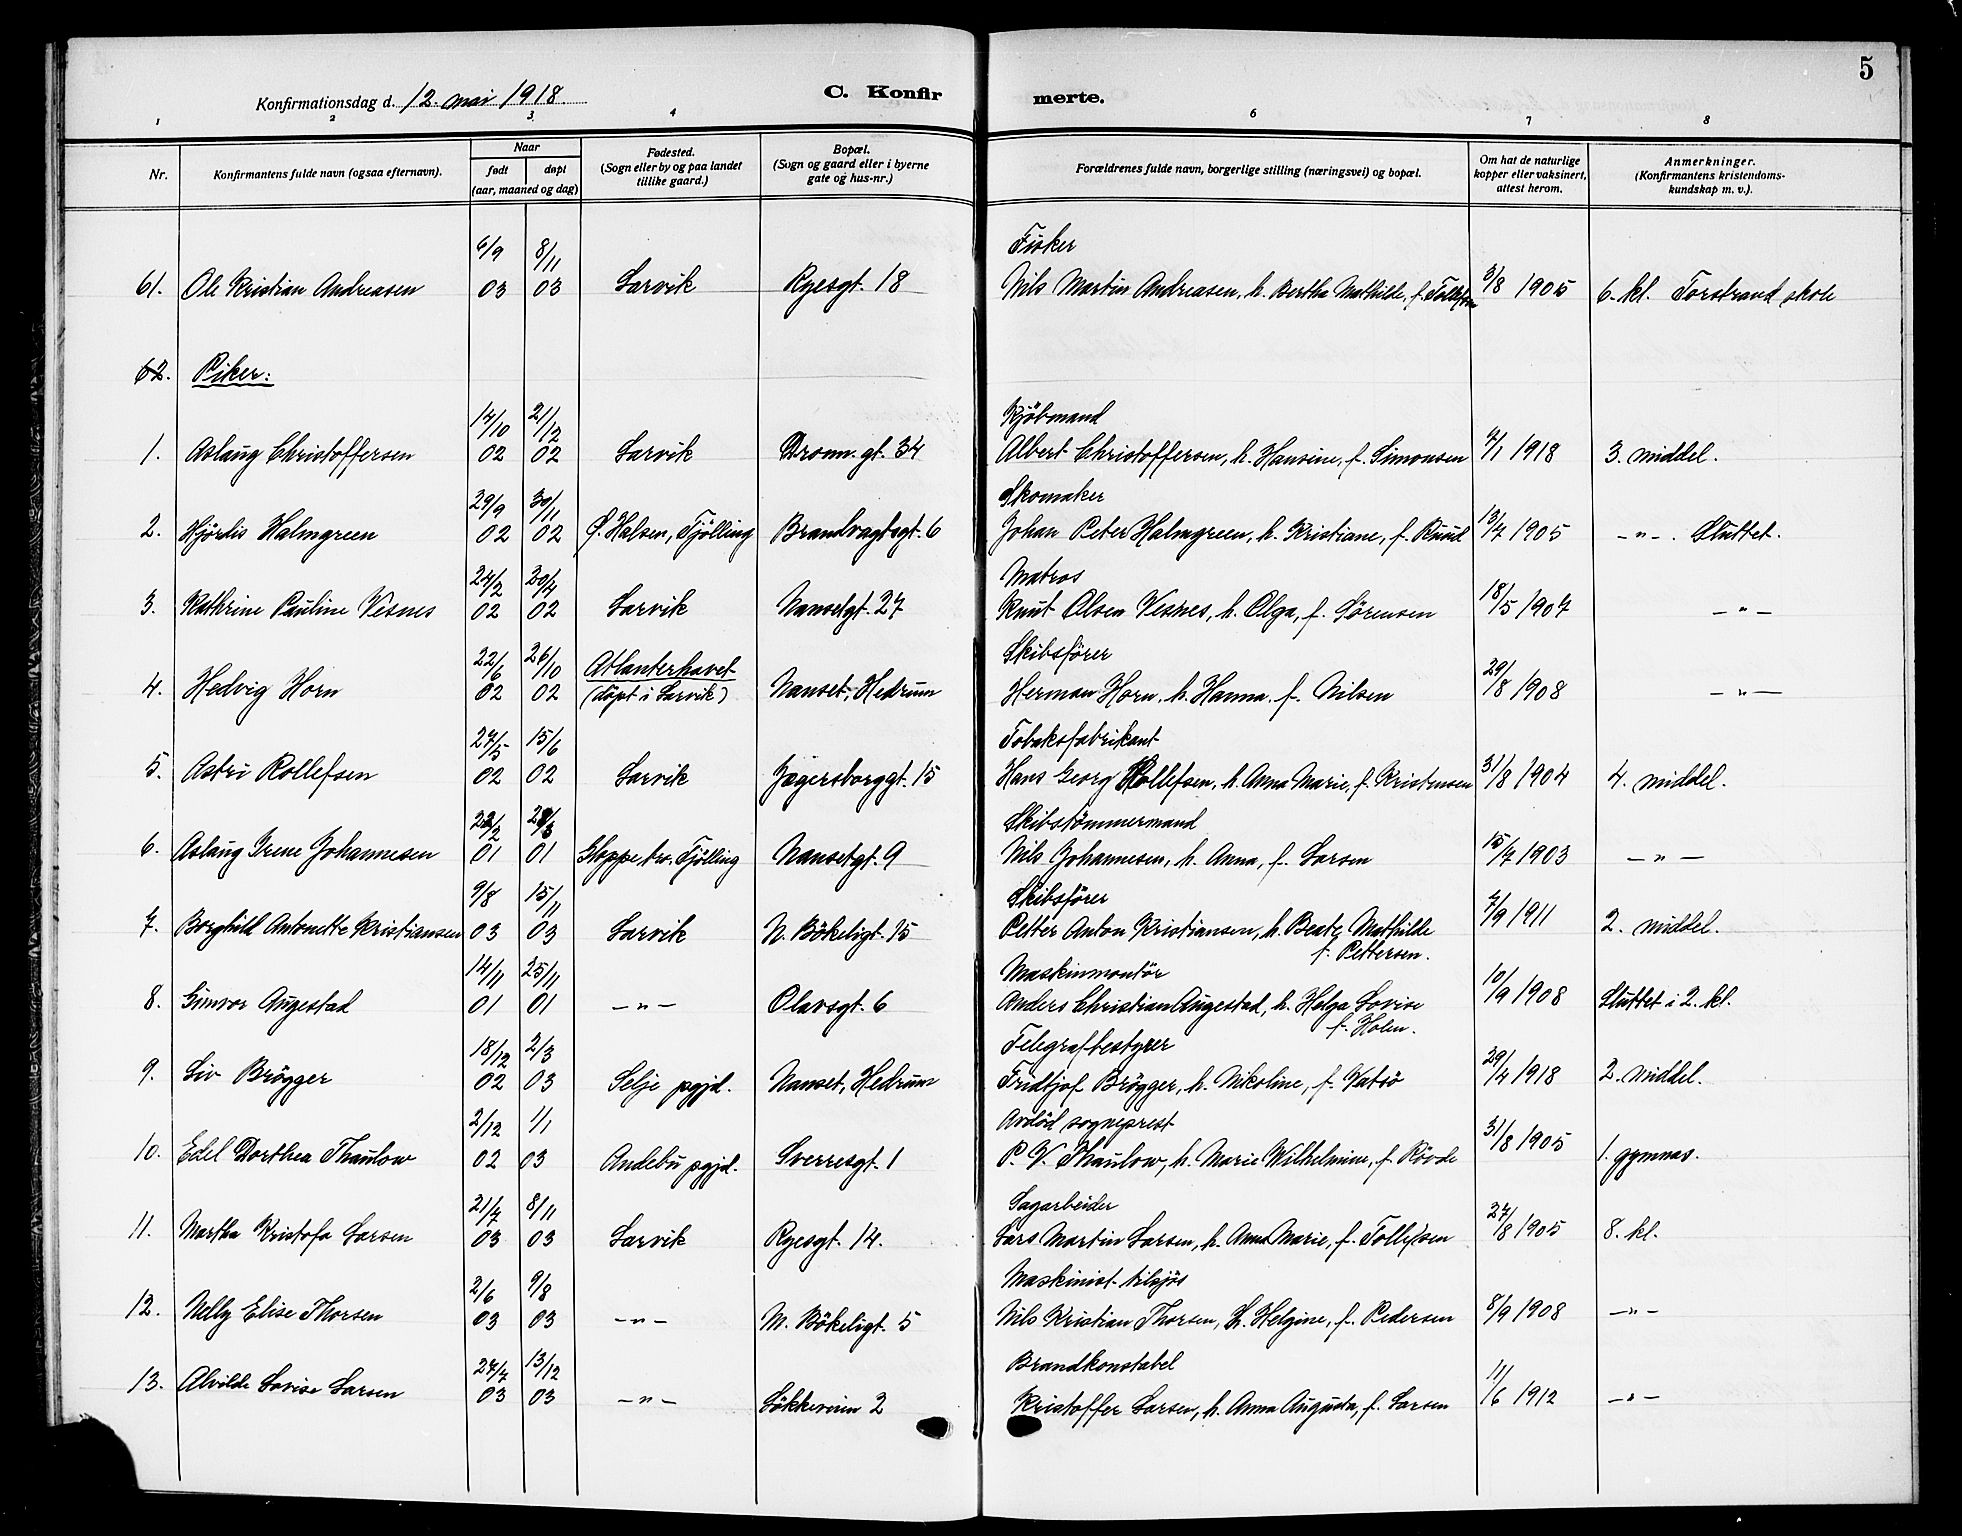 5
Konfirmationsdag d. 12. mai 1918.
C. Konfirmerte.
1 2 3. 4 6 7 8
Nr.
Konfirmantens fulde navn (ogsaa efternavn).
Naar
født døpt
(aar, maaned og dag)
Fødested.
(Sogn eller by og paa landet
tillike gaard.)
Bopæl.
(Sogn og gaard eller i byerne
gate og hus-nr.)
Forældrenes fulde navn, borgerlige stilling (næringsvei) og bopæl.
Om hat de naturlige
kopper eller vaksinert,
attest herom.
Anmerkninger.
(Konfirmantens kristendoms-
kundskap m. v.).
6/9 8/11 Fisker
61. Ole Kristian Andreasen 03 03 Larvik Ryesgt. 18 Nils Martin Andreasen, h. Bertha Mathilde, f. Tollefsen 3/8 1905 6. kl. Torstrand skole
62. Piker:
14/10 21/12 Kjöbmand
1. Aslaug Christoffersen 02 02 Larvik Dronn.gt. 34 Albert Christoffersen, h. Hansine, f. Simonsen 4/1 1918 3. middel.
29/9 30/11 Skomaker
2. Hjördis Halmgreen 02 02 Ö. Halsen, Tjölling Brandvagtsgt. 6 Johan Peter Halmgreen, h. Kristiane, f. Ruud 13/7 1905 -"- . Sluttet.
24/2 30/4 Matros
3. Kathrine Pauline Vesnes 02 02 Larvik Nansetgt. 27 Knut Olsen Vesnes, h. Olga, f. Sörensen 18/5 1907 -"-
22/6 26/10 Atlanterhavet Skibsförer
4. Hedvig Horn 02 02 (döpt i Larvik) Nanset, Hedrum Herman Horn, h. Hanna, f. Nilsen 29/8 1908 -"-
27/5 15/6 Tobaksfabrikant
5. Astri Rollefsen 02 02 Larvik Jægersborggt. 15 Hans Georg Rollefsen, h. Anna Marie, f. Kristensen 31/8 1904 4. middel.
22/2 28/3 Skibstömmermand
6. Aslaug Irene Johannesen 01 01 Tjölling Nansetgt. 9 Nils Johannesen, h. Anna, f. Larsen 15/7 1903 -"-
9/8 15/11 Skibsförer
7. Borghild Antonette Kristiansen 03 03 Larvik N. Bökeligt. 15 Petter Anton Kristiansen, h. Beate Mathilde 7/9 1911 2. middel.
f. Pettersen.
14/11 25/11 Maskinmontör
8. Gunvor Augestad 01 01 -"- Olavsgt. 6 Anders Christian Augestad, h. Helga Lovise 10/9 1908 Sluttet i 2. kl.
f. Holm.
18/12 2/3 Telegrafbestyrer
9. Liv Brögger 02 03 Selje pgjd. Nanset, Hedrum Fridtjof Brögger, h. Nikoline, f. Vatsö 29/4 1918 2. middel.
2/12 1/1 Avdöd sogneprest
10. Edel Dorthea Thaulow 02 03 Andebu pgjd. Sverresgt. 1 P. V. Thaulow, h. Marie Wilhelmine, f. Rövde 31/8 1905 1. gymnas.
21/7 8/11 Sagarbeider
11. Martha Kristofa Larsen 03 03 Larvik Ryesgt. 14. Lars Martin Larsen, h. Anna Marie, f. Tollefsen 27/8 1905 8. kl.
2/6 9/8 Maskinist tilsjös
12. Nelly Elise Thorsen 03 03 -"- N. Bökeligt. 5 Nils Kristian Thorsen, h. Helgine, f. Pedersen 8/9 1908 -"-
27/7 13/12 Brandkonstabel
13. Alvilde Lovise Larsen 03 03 -"- Lökkeveien 2 Kristoffer Larsen, h. Anna Augusta, f. Larsen 11/6 1912 -"-